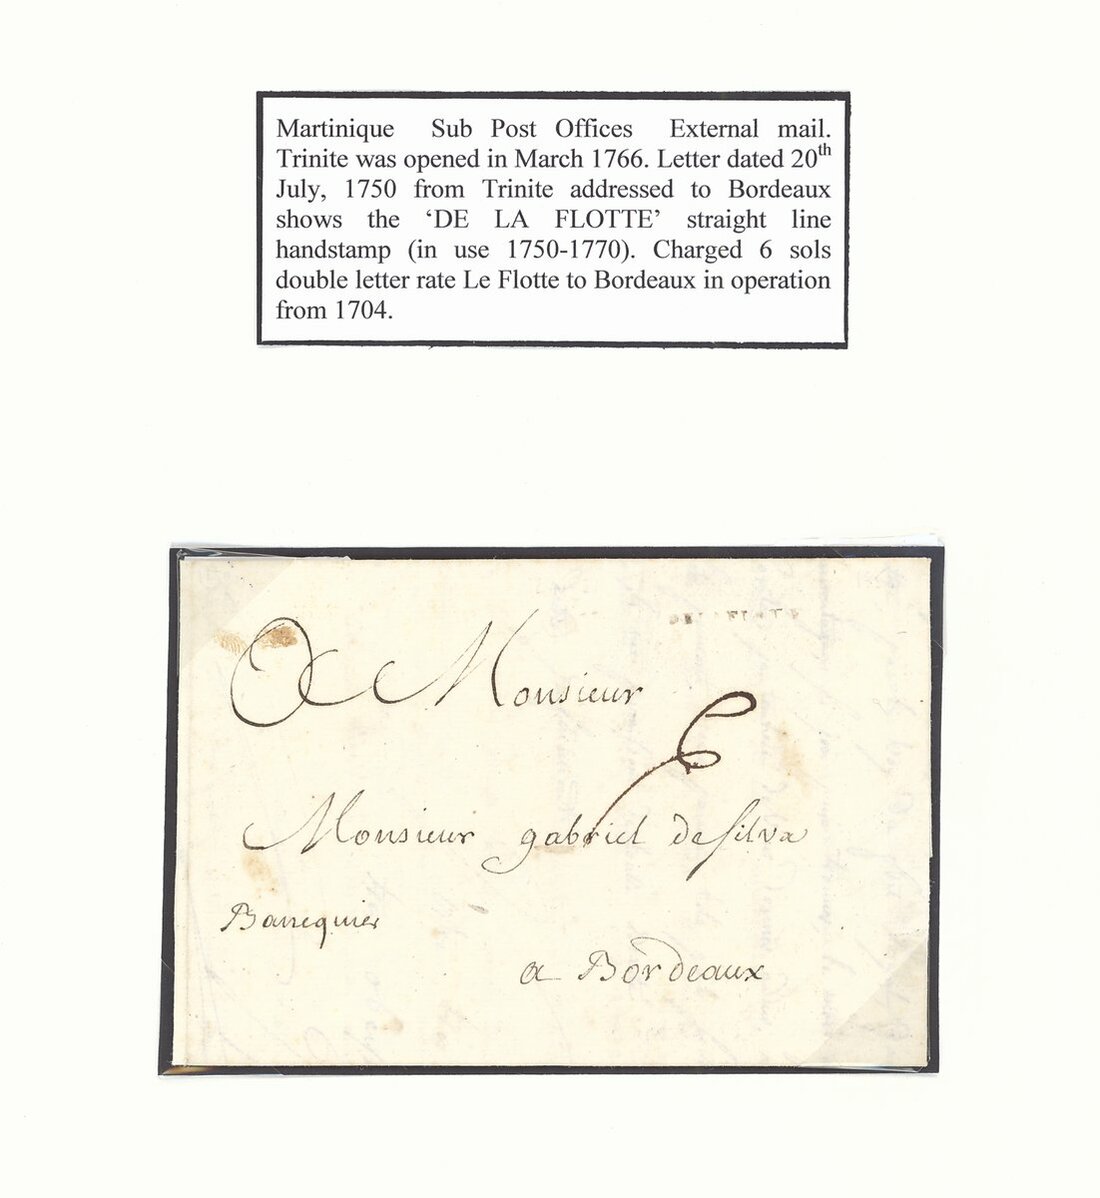 Martinique Sub Post Offices External mail.
Trinite was opened in March 1766. Letter dated 20th
July, 1750 from Trinite addressed to Bordeaux
shows the ‘DE LA FLOTTE’ straight line
handstamp (in use 1750-1770). Charged 6 sols
double letter rate Le Flotte to Bordeaux in operation
from 1704.
A Monsieur
6
Monsieur gabriel de silva
Banequier
a Bordeaux